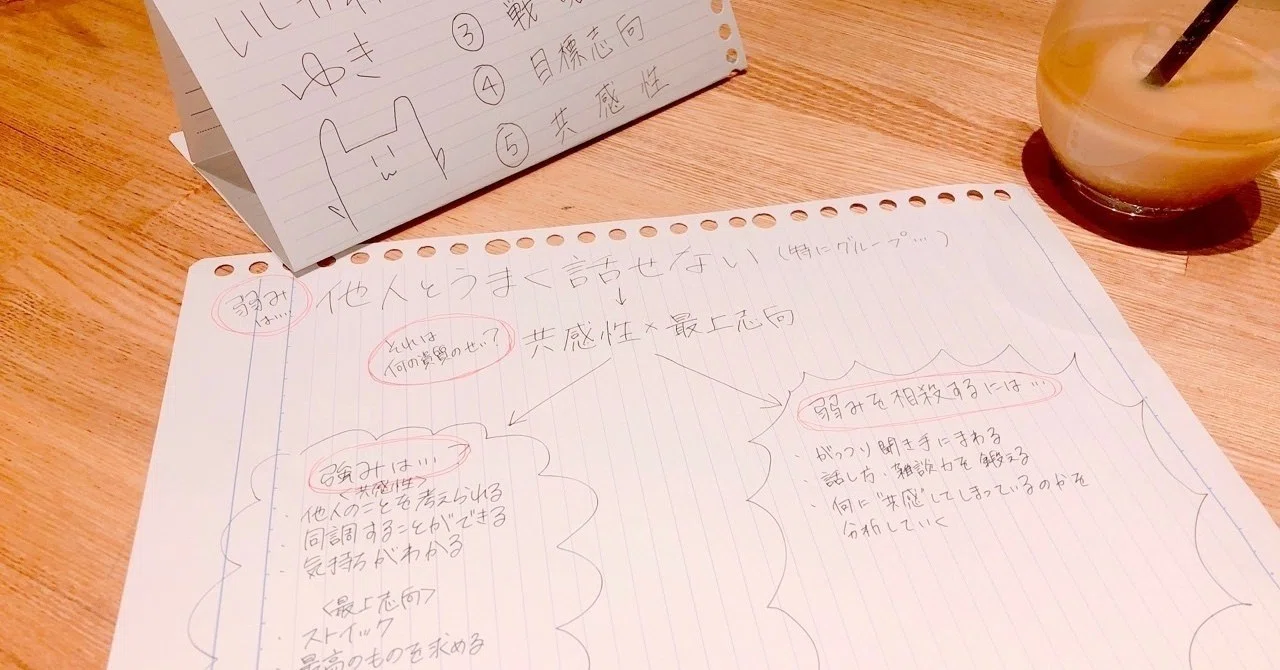 ゆき
③ 戦
④ 目標志向
⑤ 共感性
弱み
は…. 他人とうまく話せない (特にグループ…)
↓
それは
何の資質のせい? 共感性×最上志向
強みは…
<共感性>
・他人のことを考えられる
・同調することができる
・気持ちがわかる
<最上志向>
・ストイック
・最高のものを求める
弱みを相殺するには…
・がっつり聞き手にまわる
・話し方・雑談力を鍛える
・何に"共感"してしまっているのかを
分析していく